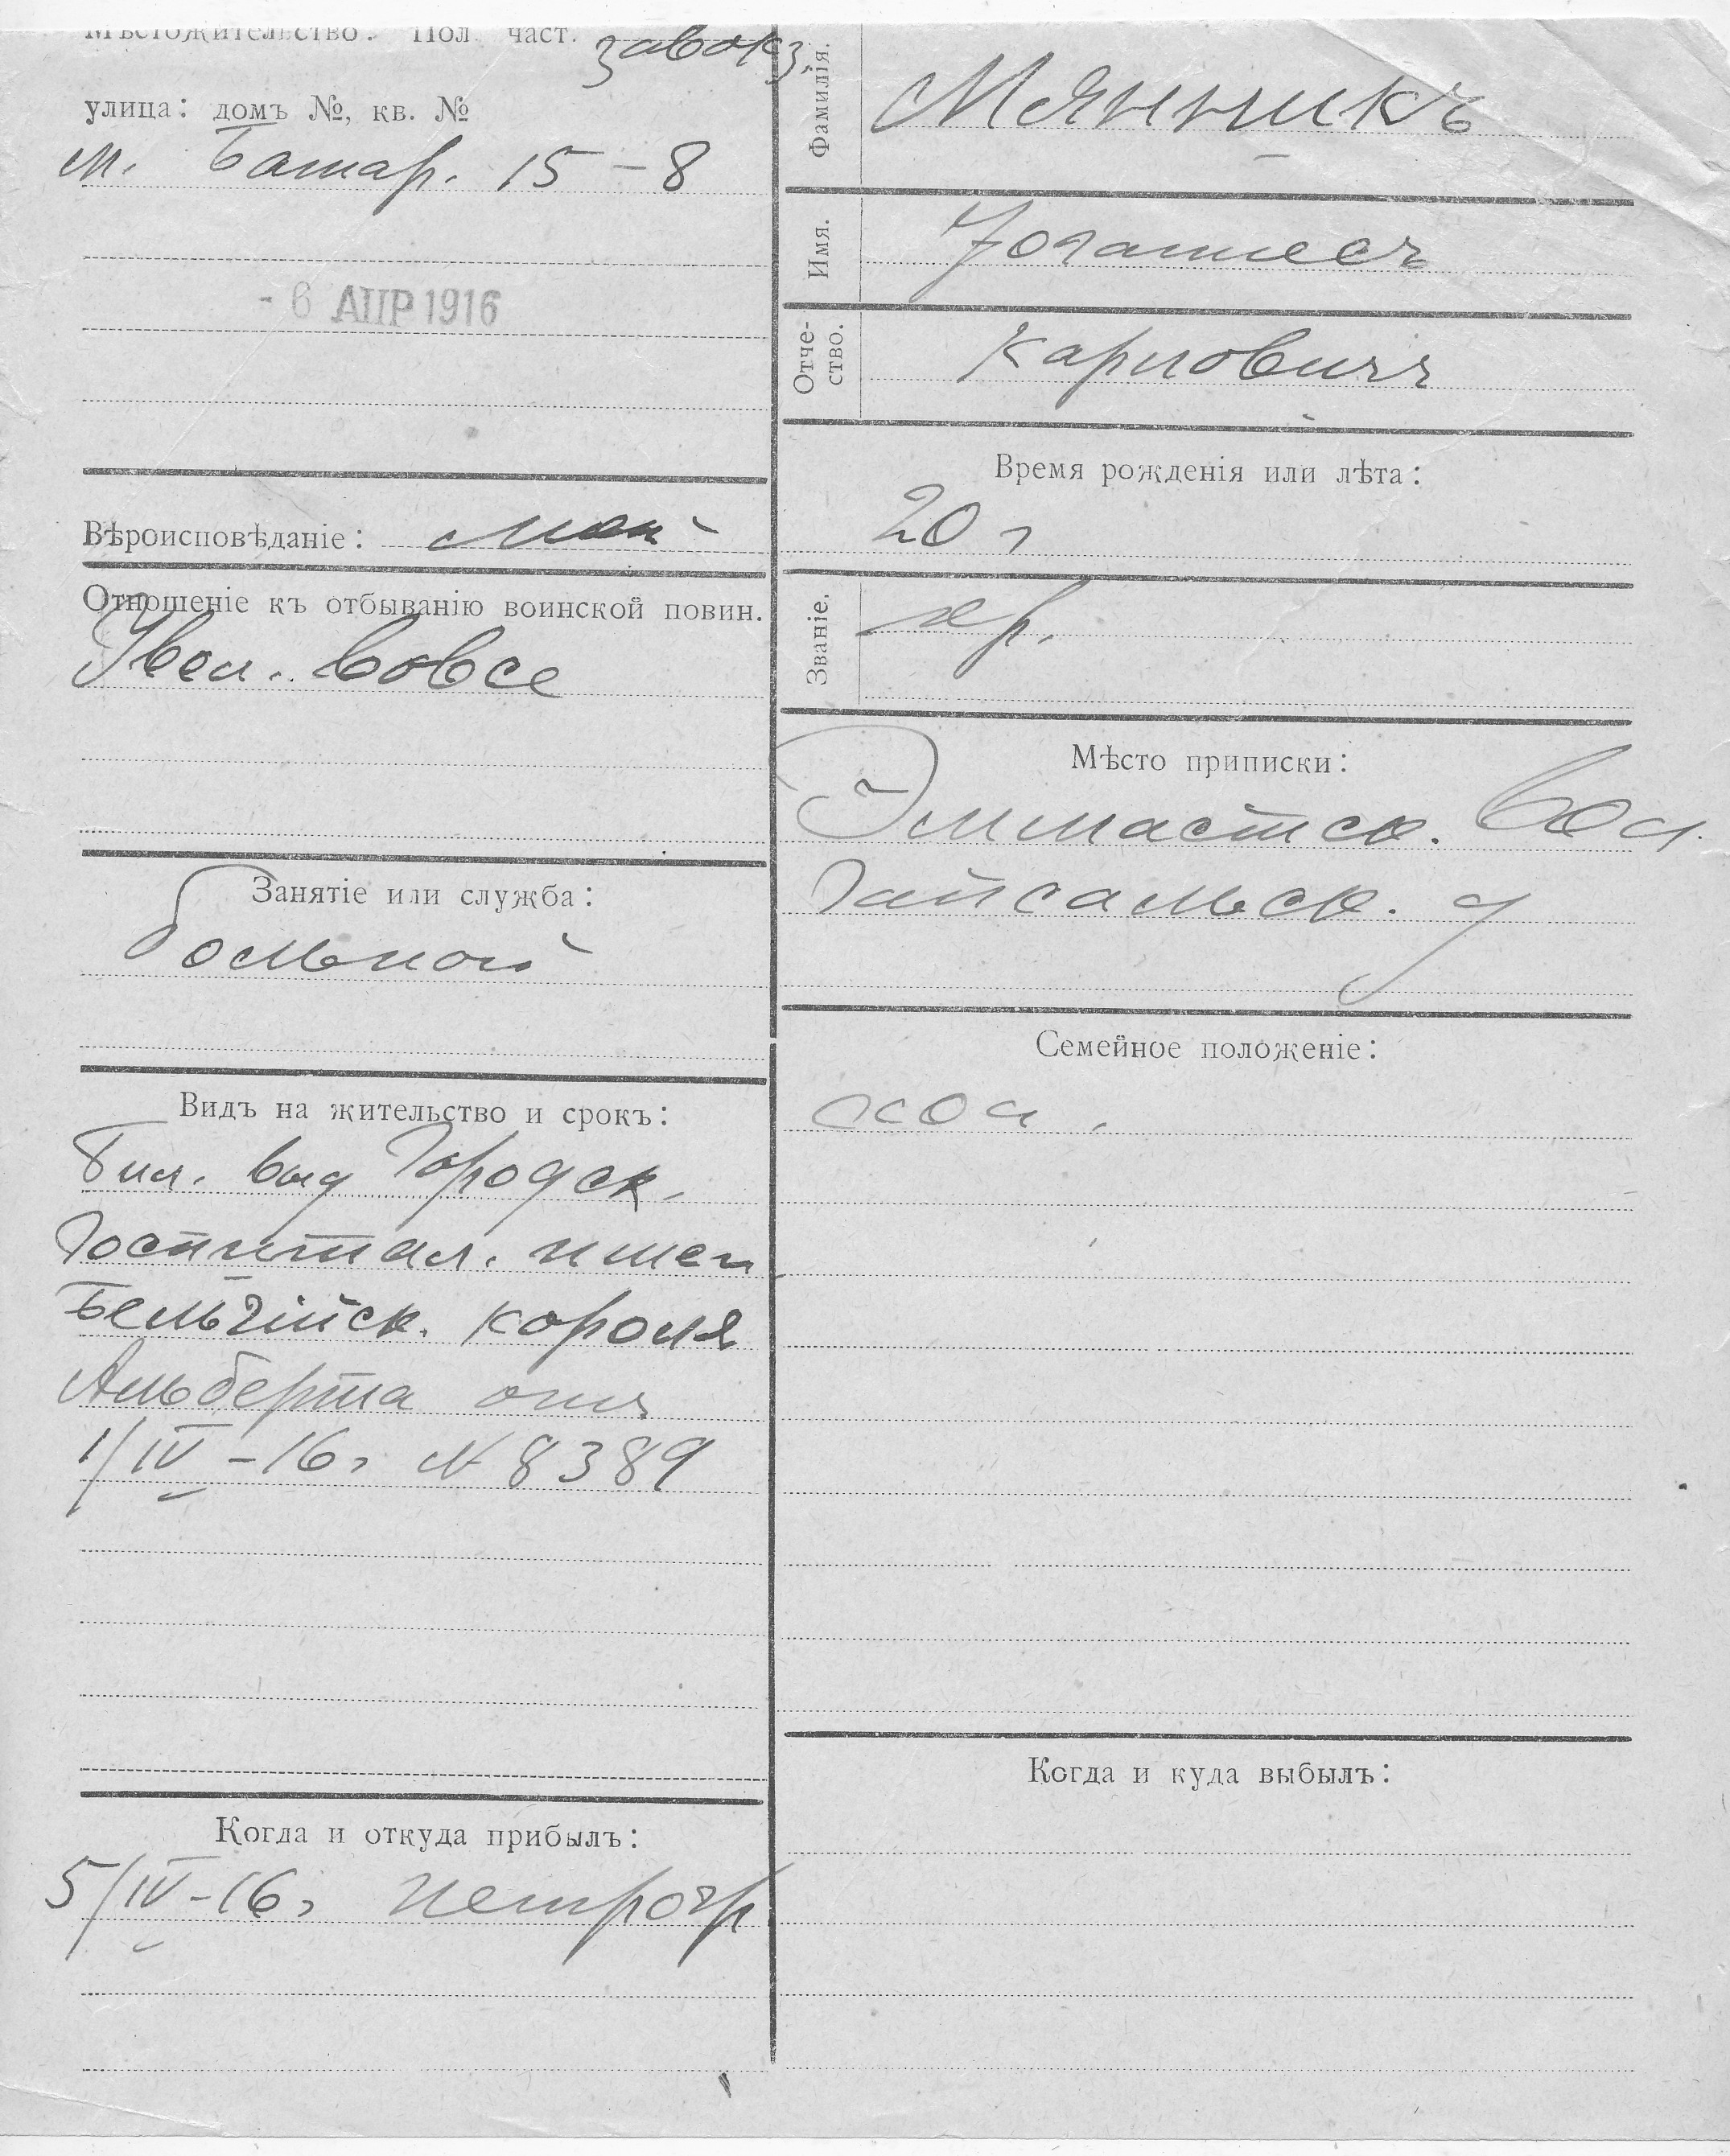 Мѣстожительство: Пол. част.
завокз.
улица: домъ №, кв. №
М. Батар. 15 – 8
- 6 АПР 1916
Вѣроисповѣданіе:
Отношеніе къ отбыванію воинской повин.
Увол. вовсе
Занятіе или служба:
больной
Видъ на жительство и срокъ:
Бил. выд Городск.
Госпитал. имен
Бельгійск. короля
Альберта отъ
1/IV – 16 г № 8389
Когда и откуда прибылъ:
5/IV – 16 г Петрогр
Фамилія.
Мянникъ
Имя.
Іоганнесъ
Отче-
ство.
Карповичъ
Время рожденія или лѣта:
20 г
Званіе.
кр.
Мѣсто приписки:
Эммастск. вол.
Гапсальск. у
Семейное положеніе:
хол.
Когда и куда выбылъ: